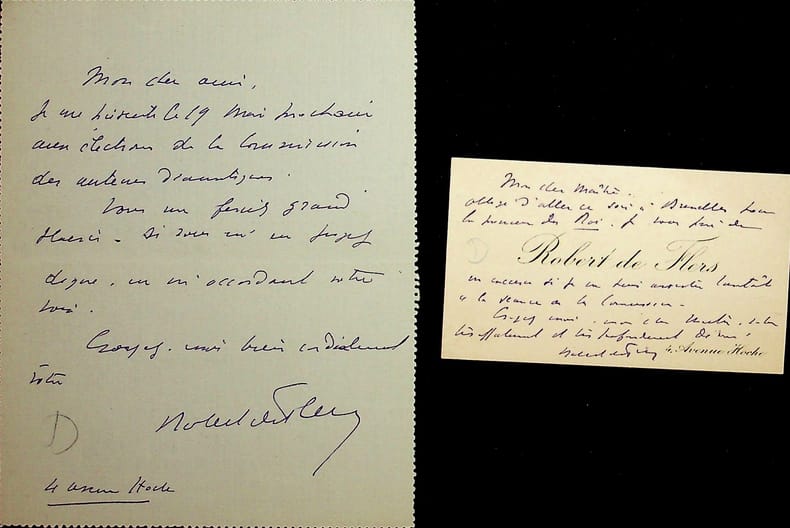 Mon cher ami,
Je me présente le 19 Mai prochain
aux élections de la Commission
des auteurs dramatiques.
Vous me feriez grand
honneur - si vous m'en jugez
digne, en m'accordant votre
voix.
Croyez-moi bien cordialement
vôtre
Robert de Flers
4 avenue Hoche
D
Mon cher Maître.
obligé d'aller ce soir à Bruxelles pour
la première du Roi. Je vous prie de
D
Robert de Flers
m'excuser si je ne puis assister tantôt
à la séance de la Commission -
Croyez-moi, mon cher Maître, votre
très affectueux et très profondément dévoué
Robert de Flers
4, Avenue Hoche